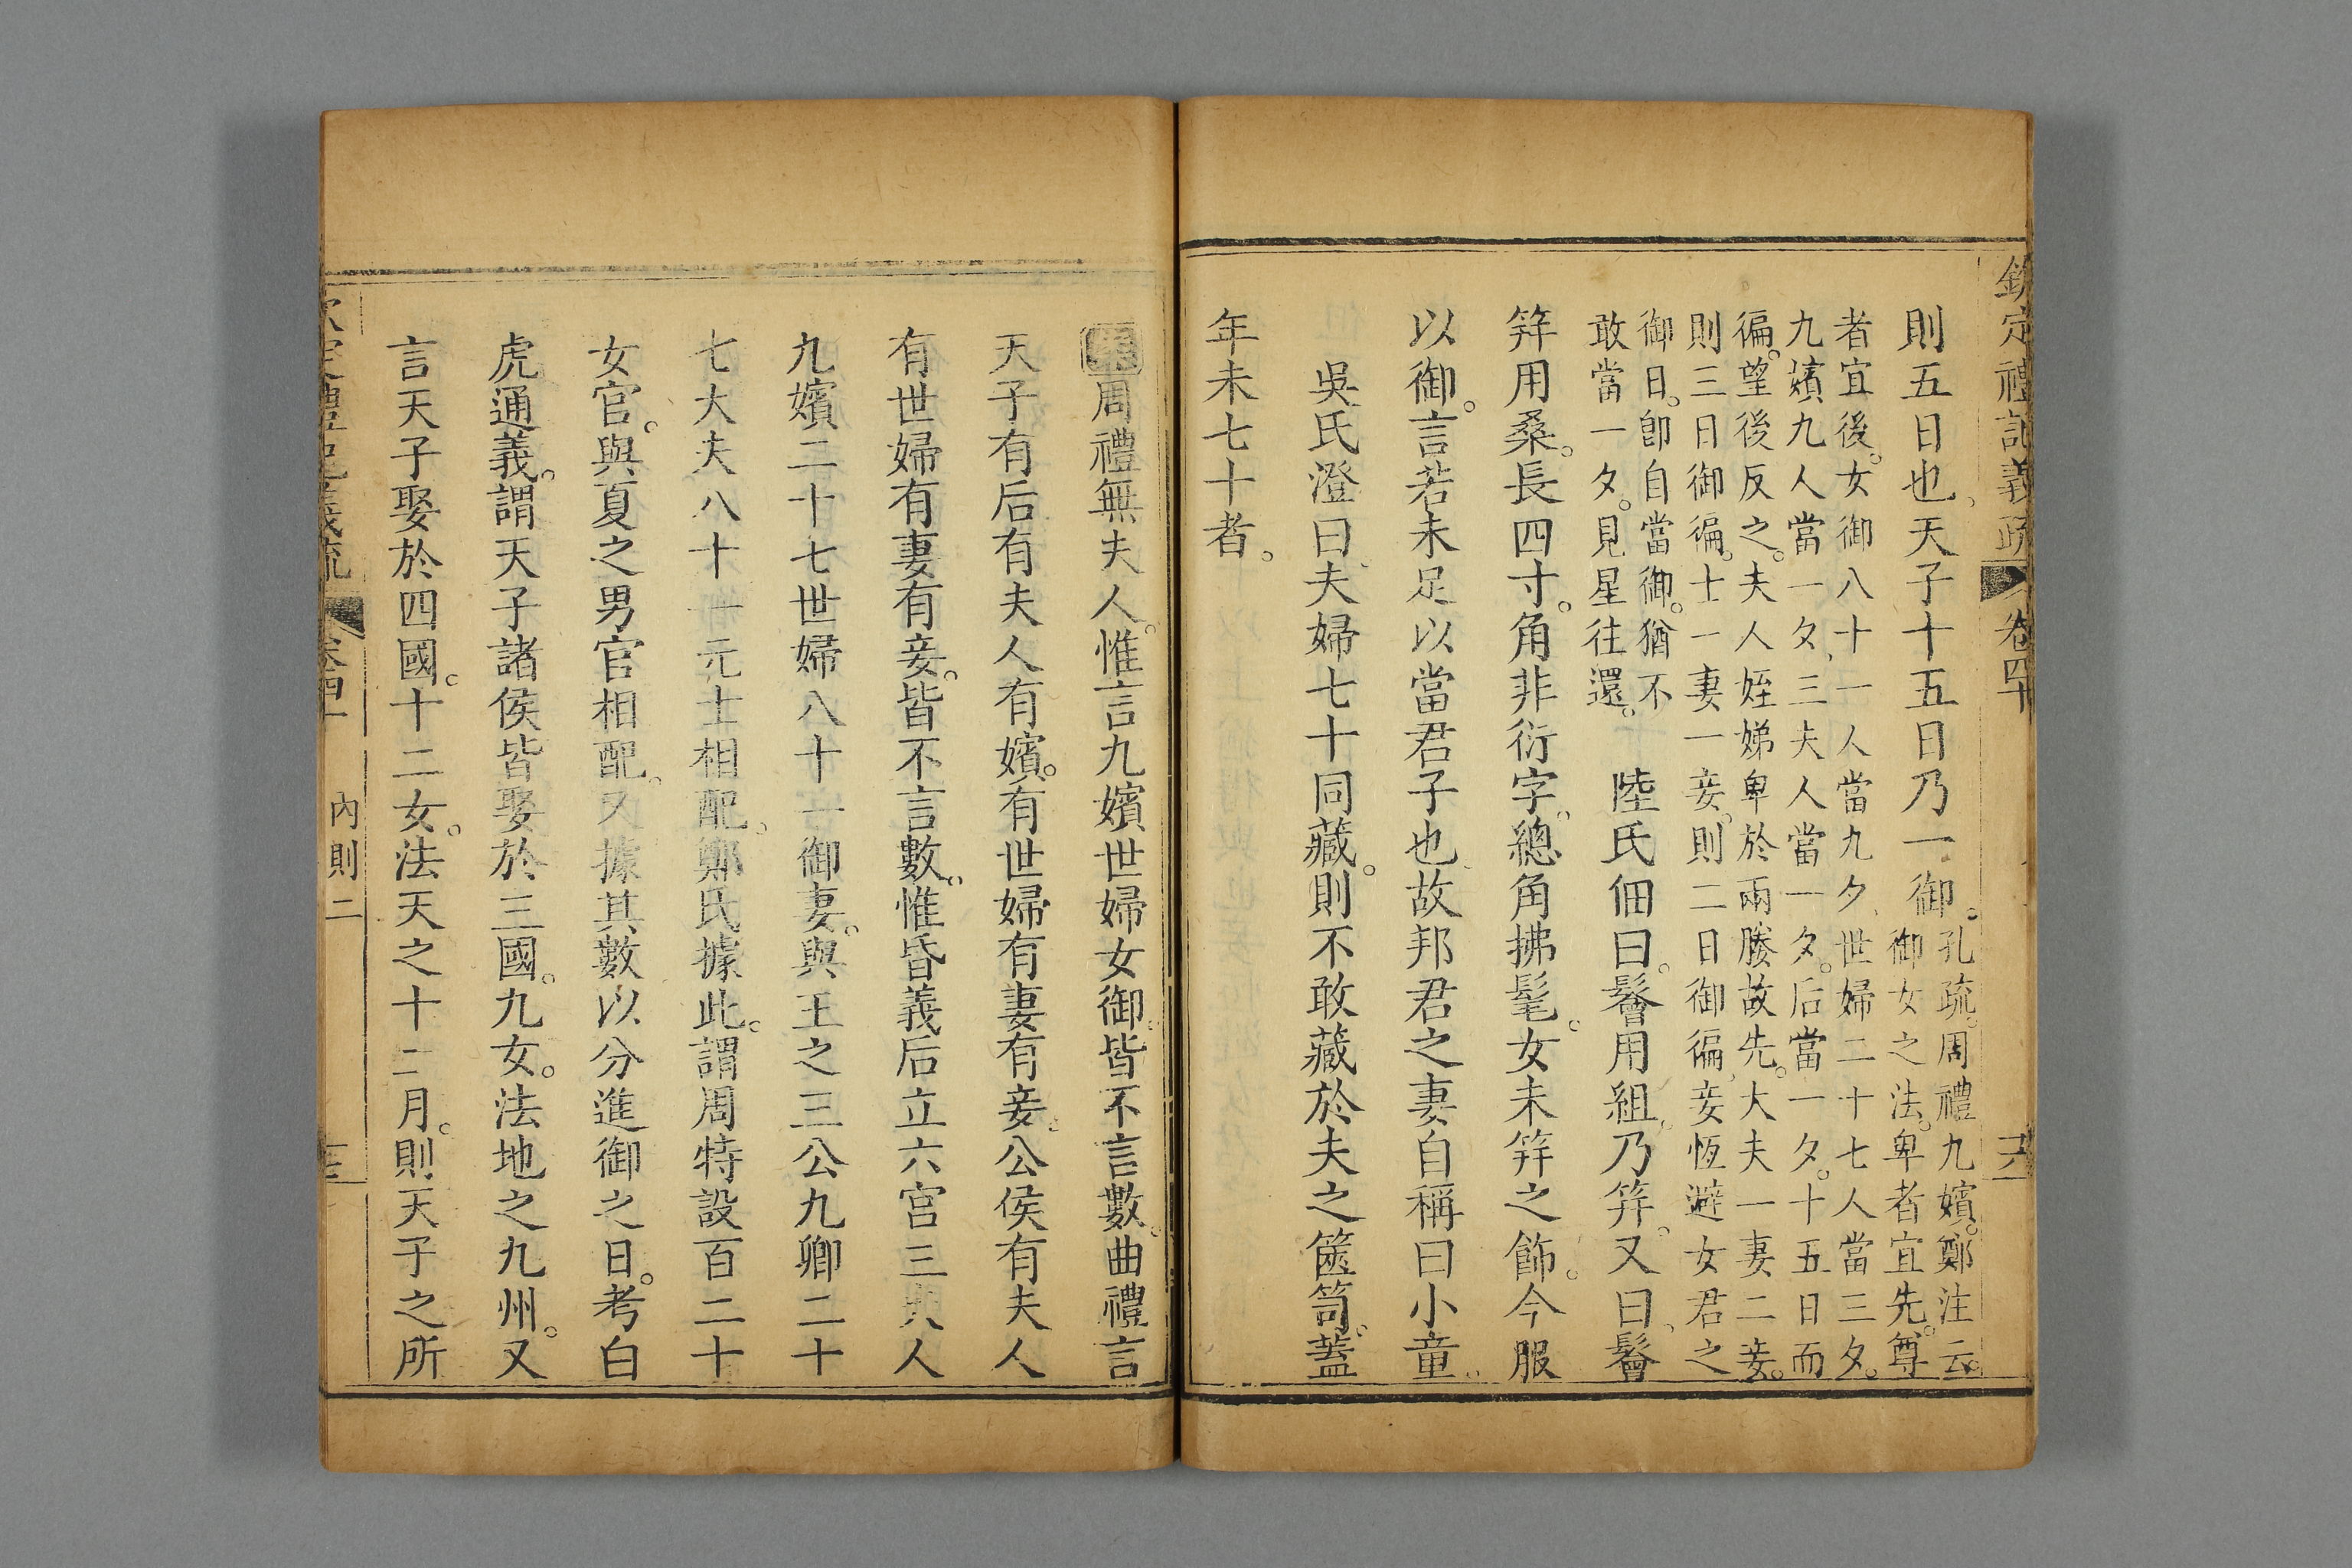 欽定禮記義疏 卷四十
則五日也天子十五日乃一御。孔疏。周禮九嬪。鄭注云。
御女之法。卑者宜先。尊
者宜後。女御八十一人當九夕、世婦二十七人當三夕。
九嬪九人當一夕、三夫人當一夕。后當一夕。十五日而
徧。望後反之。夫人姪娣卑於兩媵故先。大夫一妻二妾。
則三日御徧。士一妻一妾。則二日御徧、妾恆避女君之
御日。卽自當御。猶不
敢當一夕。見星往還。
陸氏佃曰。鬠用組、乃笄。又曰、鬠
笄用桑。長四寸。角非衍字。總角拂髦。女未笄之飾。今服
以御。言若未足以當君子也、故邦君之妻自稱曰小童。
吳氏澄曰、夫婦七十同藏。則不敢藏於夫之篋笥。蓋
年未七十者。
周禮無夫人。惟言九嬪世婦女御。皆不言數。曲禮言
天子有后有夫人有嬪。有世婦有妻有妾。公侯有夫人
有世婦有妻有妾。皆不言數。惟昏義后立六宮三夫人
九嬪二十七世婦八十一御妻。與王之三公九卿二十
七大夫八十一元士相配。鄭氏據此。謂周特設百二十
女官。與夏之男官相配。又據其數以分進御之日。考白
虎通義。謂天子諸侯皆娶於三國。九女。法地之九州。又
言天子娶於四國。十二女。法天之十二月。則天子之所
內則二